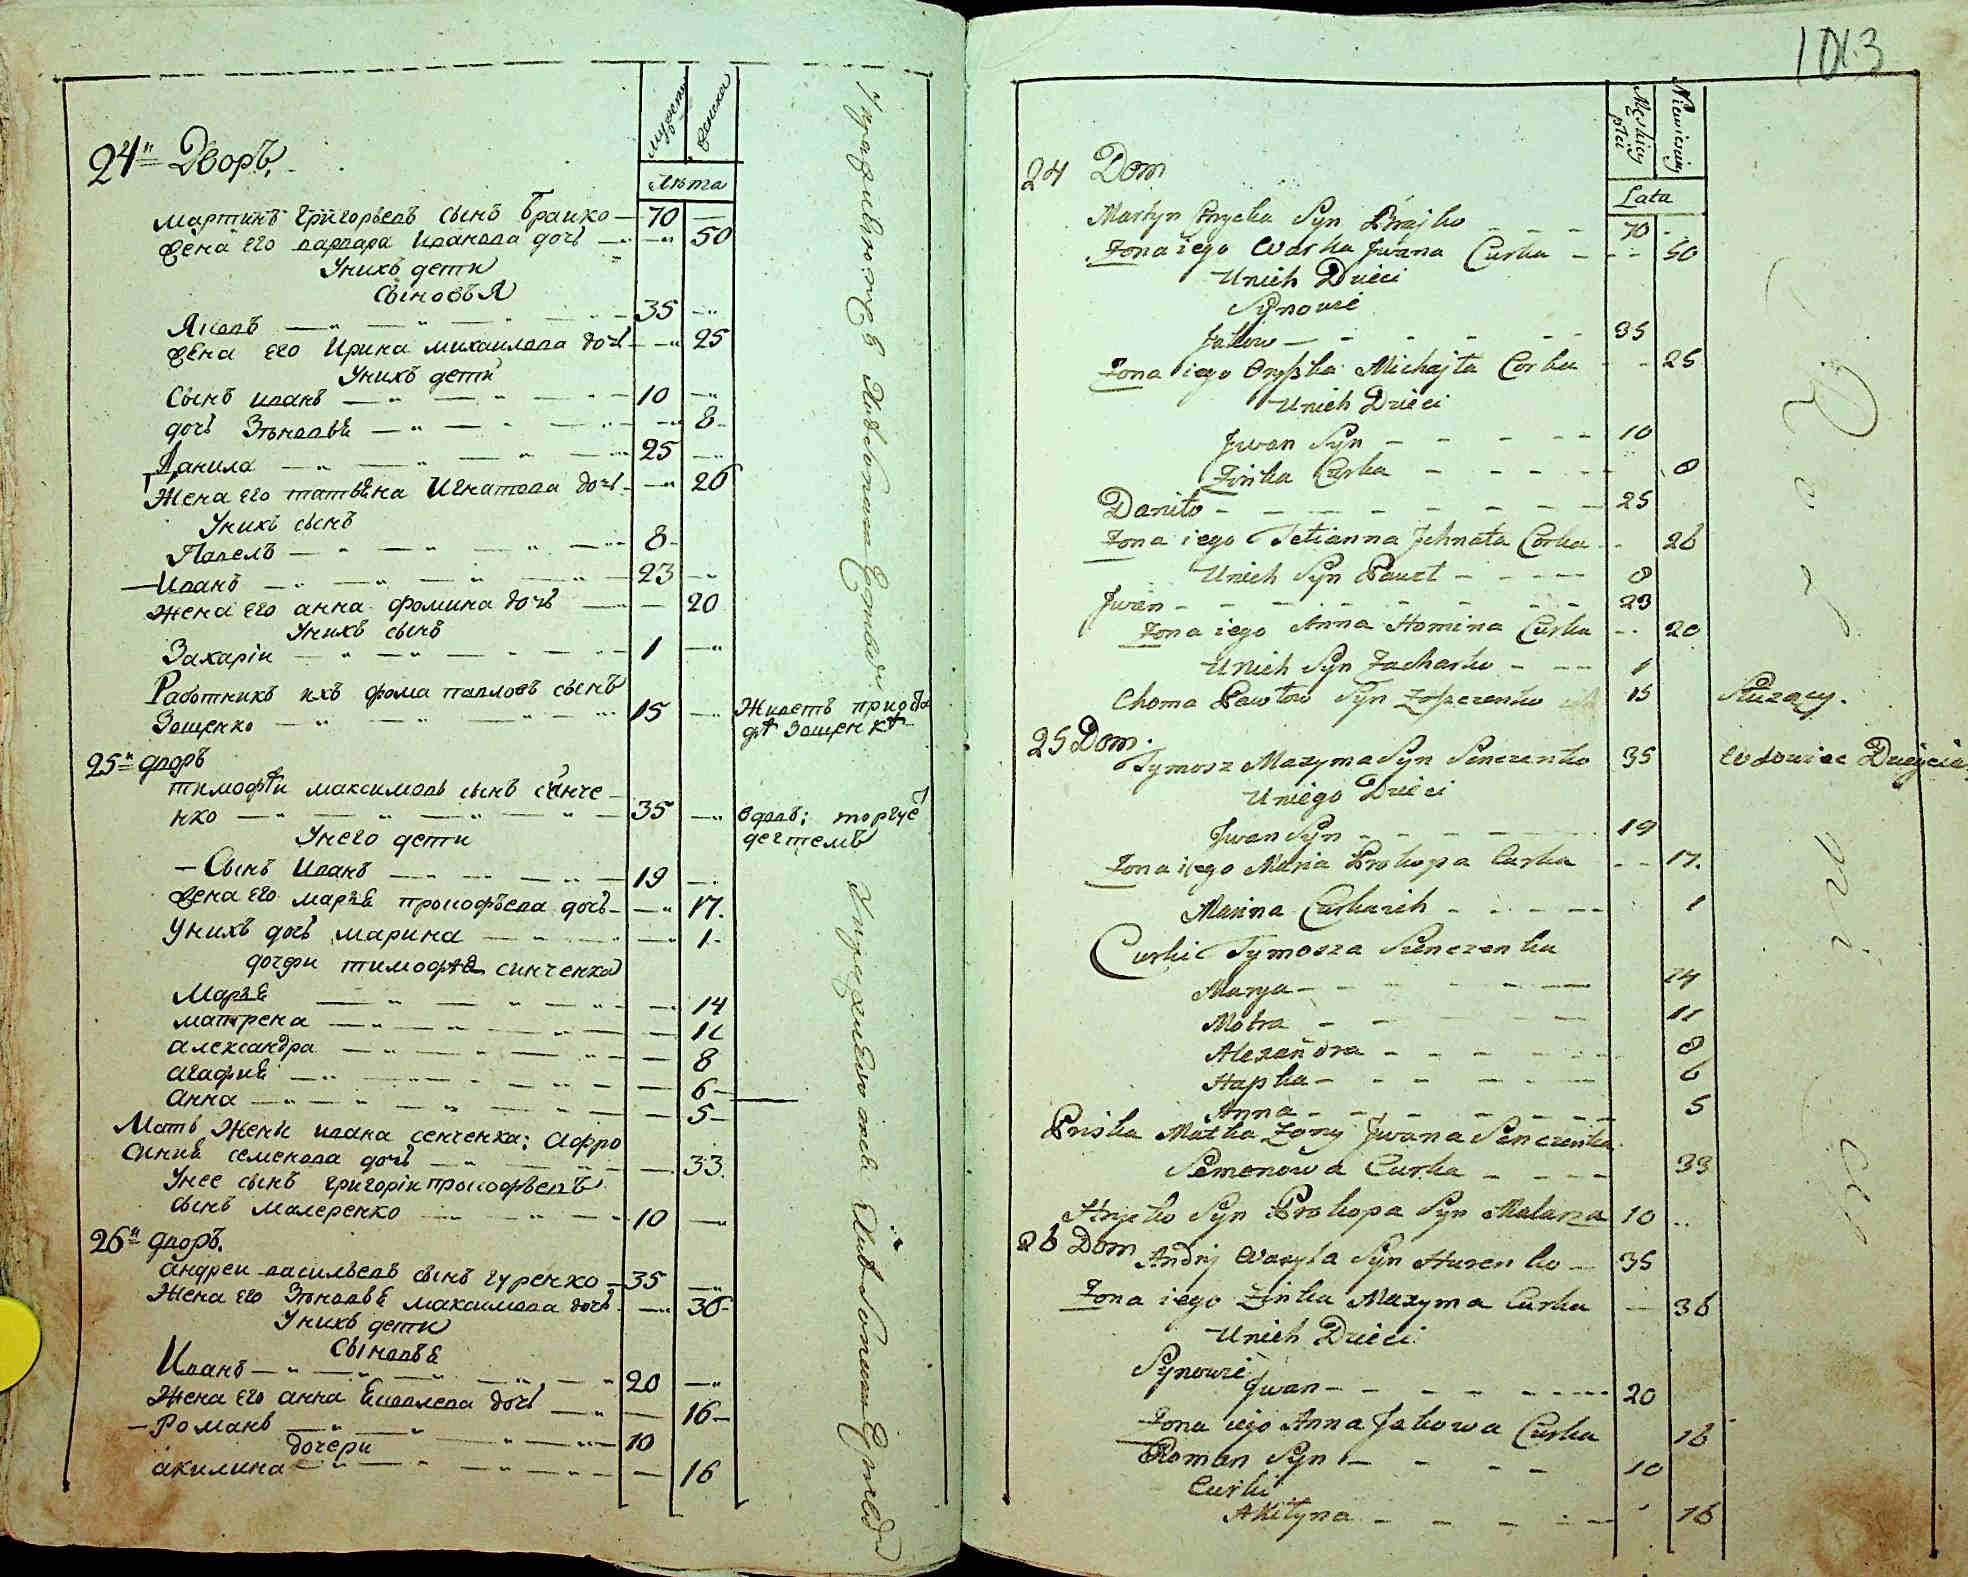 мужеска
женска
24й Дворъ.
лѣта
Мартинъ Григорьевъ сынъ Браико — 70 —
Жена его варвара Иванова дочь — — 50
Унихъ дети
Сыновья
Яковъ — 35 —
Жена его Ирина михаилова дочь — — 25
Унихъ дети
Сынъ иванъ — 10 —
дочь Зѣновья — — 8
Данила — 25 —
Жена его татьяна Игнатова дочь — — 26
Унихъ сынъ
Павелъ — 8
— Иванъ — 23 —
Жена его анна фомина дочь — — 20
Унихъ сынъ
Захаріи — 1 —
Работникъ ихъ фома павловъ сынъ
Зощенко — 15 — Живетъ при
Зощенкѣ
25й дворъ
тимофѣи максимовъ сынъ сѣнче-
нко — 35 — вдовъ: торгуе
дегтемъ
Унего дети
— Сынъ Иванъ — 19 —
Жена его марья прокофьева дочь — — 17.
Унихъ дочь марина — — 1
дочери тимофѣя синченка
Марья — — 14
матрена — — 11
александра — — 8
агафия — — 6
анна — — 5
Мать Жены ивана сенченка: Афро
синия семенова дочь — — 33
Унее сынъ григоріи прокофьевъ
сынъ маляренко — 10 —
26й дворъ.
андреи васильевъ сынъ гуренко — 35 —
Жена его Зѣновья максимова дочь — — 36
Унихъ дети
Сыновья
Иванъ — 20 —
Жена его анна яковлева дочь — — 16
— Романъ — 10
дочери
акилина — — 16
1013
Męskiey płci
Niewieściey
24 Dom
Lata
Martyn Hrycka Syn Brayko - - - 70 -
Żona iego Warka Jwana Curka - - - 50
Unich Dzieci
Synowie
Jakow - - - 35
Żona iego Oryszka Michajła Corka - - 25
Unich Dzieci
Jwan Syn - - - 10
Zińka Curka - - - 8
Daniło - - - 25
Żona iego Tetianna Jhnata Corka - 26
Unich Syn Paweł - - - 8
Jwan - - - 23
Żona iego Anna Homina Curka - - 20
Unich Syn Zacharko - - - 1
Choma Pawłow Syn Zoszczenko 15 Służący.
25 Dom.
Tymosz Maxyma Syn Senczenko 35 Wdowiec
Uniego Dzieci
Jwan Syn - - - 19
Żona iego Maria Prokopa Curka - - 17.
Marina Curka ich - - - 1
Curki Tymosza Senczenka
Marya - - - 14
Motra - - - 11
Alexandra - - - 8
Hapka - - - 6
Anna - - - 5
Priska Matka Żony Jwana Senczenka
Semenowa Curka - - - 33
Hryćko Syn Prokopa Syn Malarza 10 ..
26 Dom
Andrij Wasyla Syn Hurenko - 35
Żona iego Zinka Maxyma Curka - 36
Unich Dzieci
Synowie
Jwan - - - 20
Żona iego Anna Jakowa Curka 16
Roman Syn - - - 10
Curki
Akiłyna - - - 16